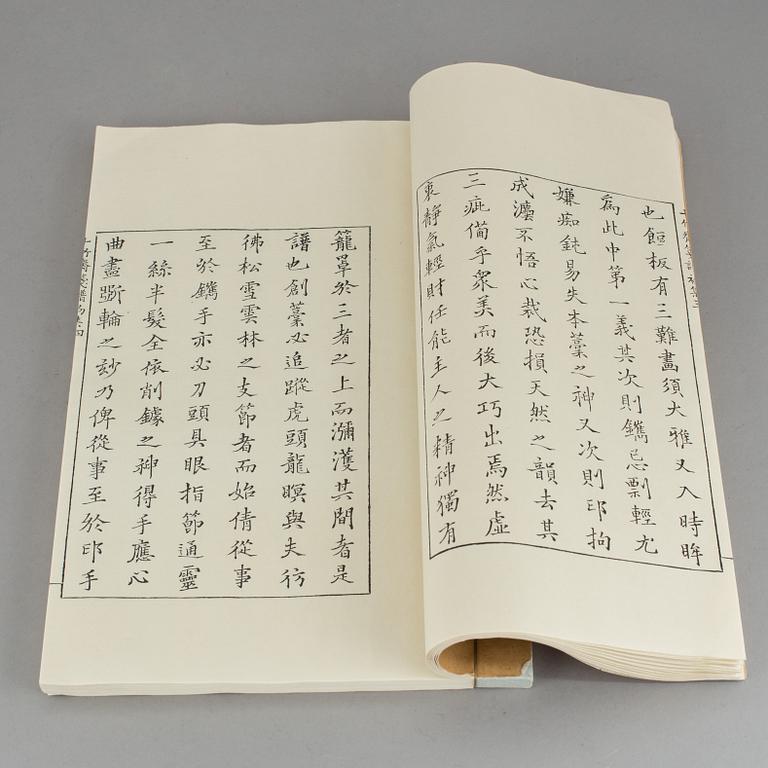 也餖板有三難畫須大雅又入時眸
為此中第一義其次則鐫忌剽輕尤
嫌痴鈍易失本藁之神又次則印拘
成灋不悟心裁恐損天然之韻去其
三疵備乎衆美而後大巧出焉然虛
衷靜氣輕財任能主人之精神獨有
籠罩於三者之上而瀰濩其間者是
譜也創藁必追蹤虎頭龍瞑與夫彷
彿松雪雲林之支節者而始倩從事
至於鐫手亦必刀頭具眼指節通靈
一絲半髮全依削鐻之神得手應心
曲盡斲輪之玅乃俾從事至於印手